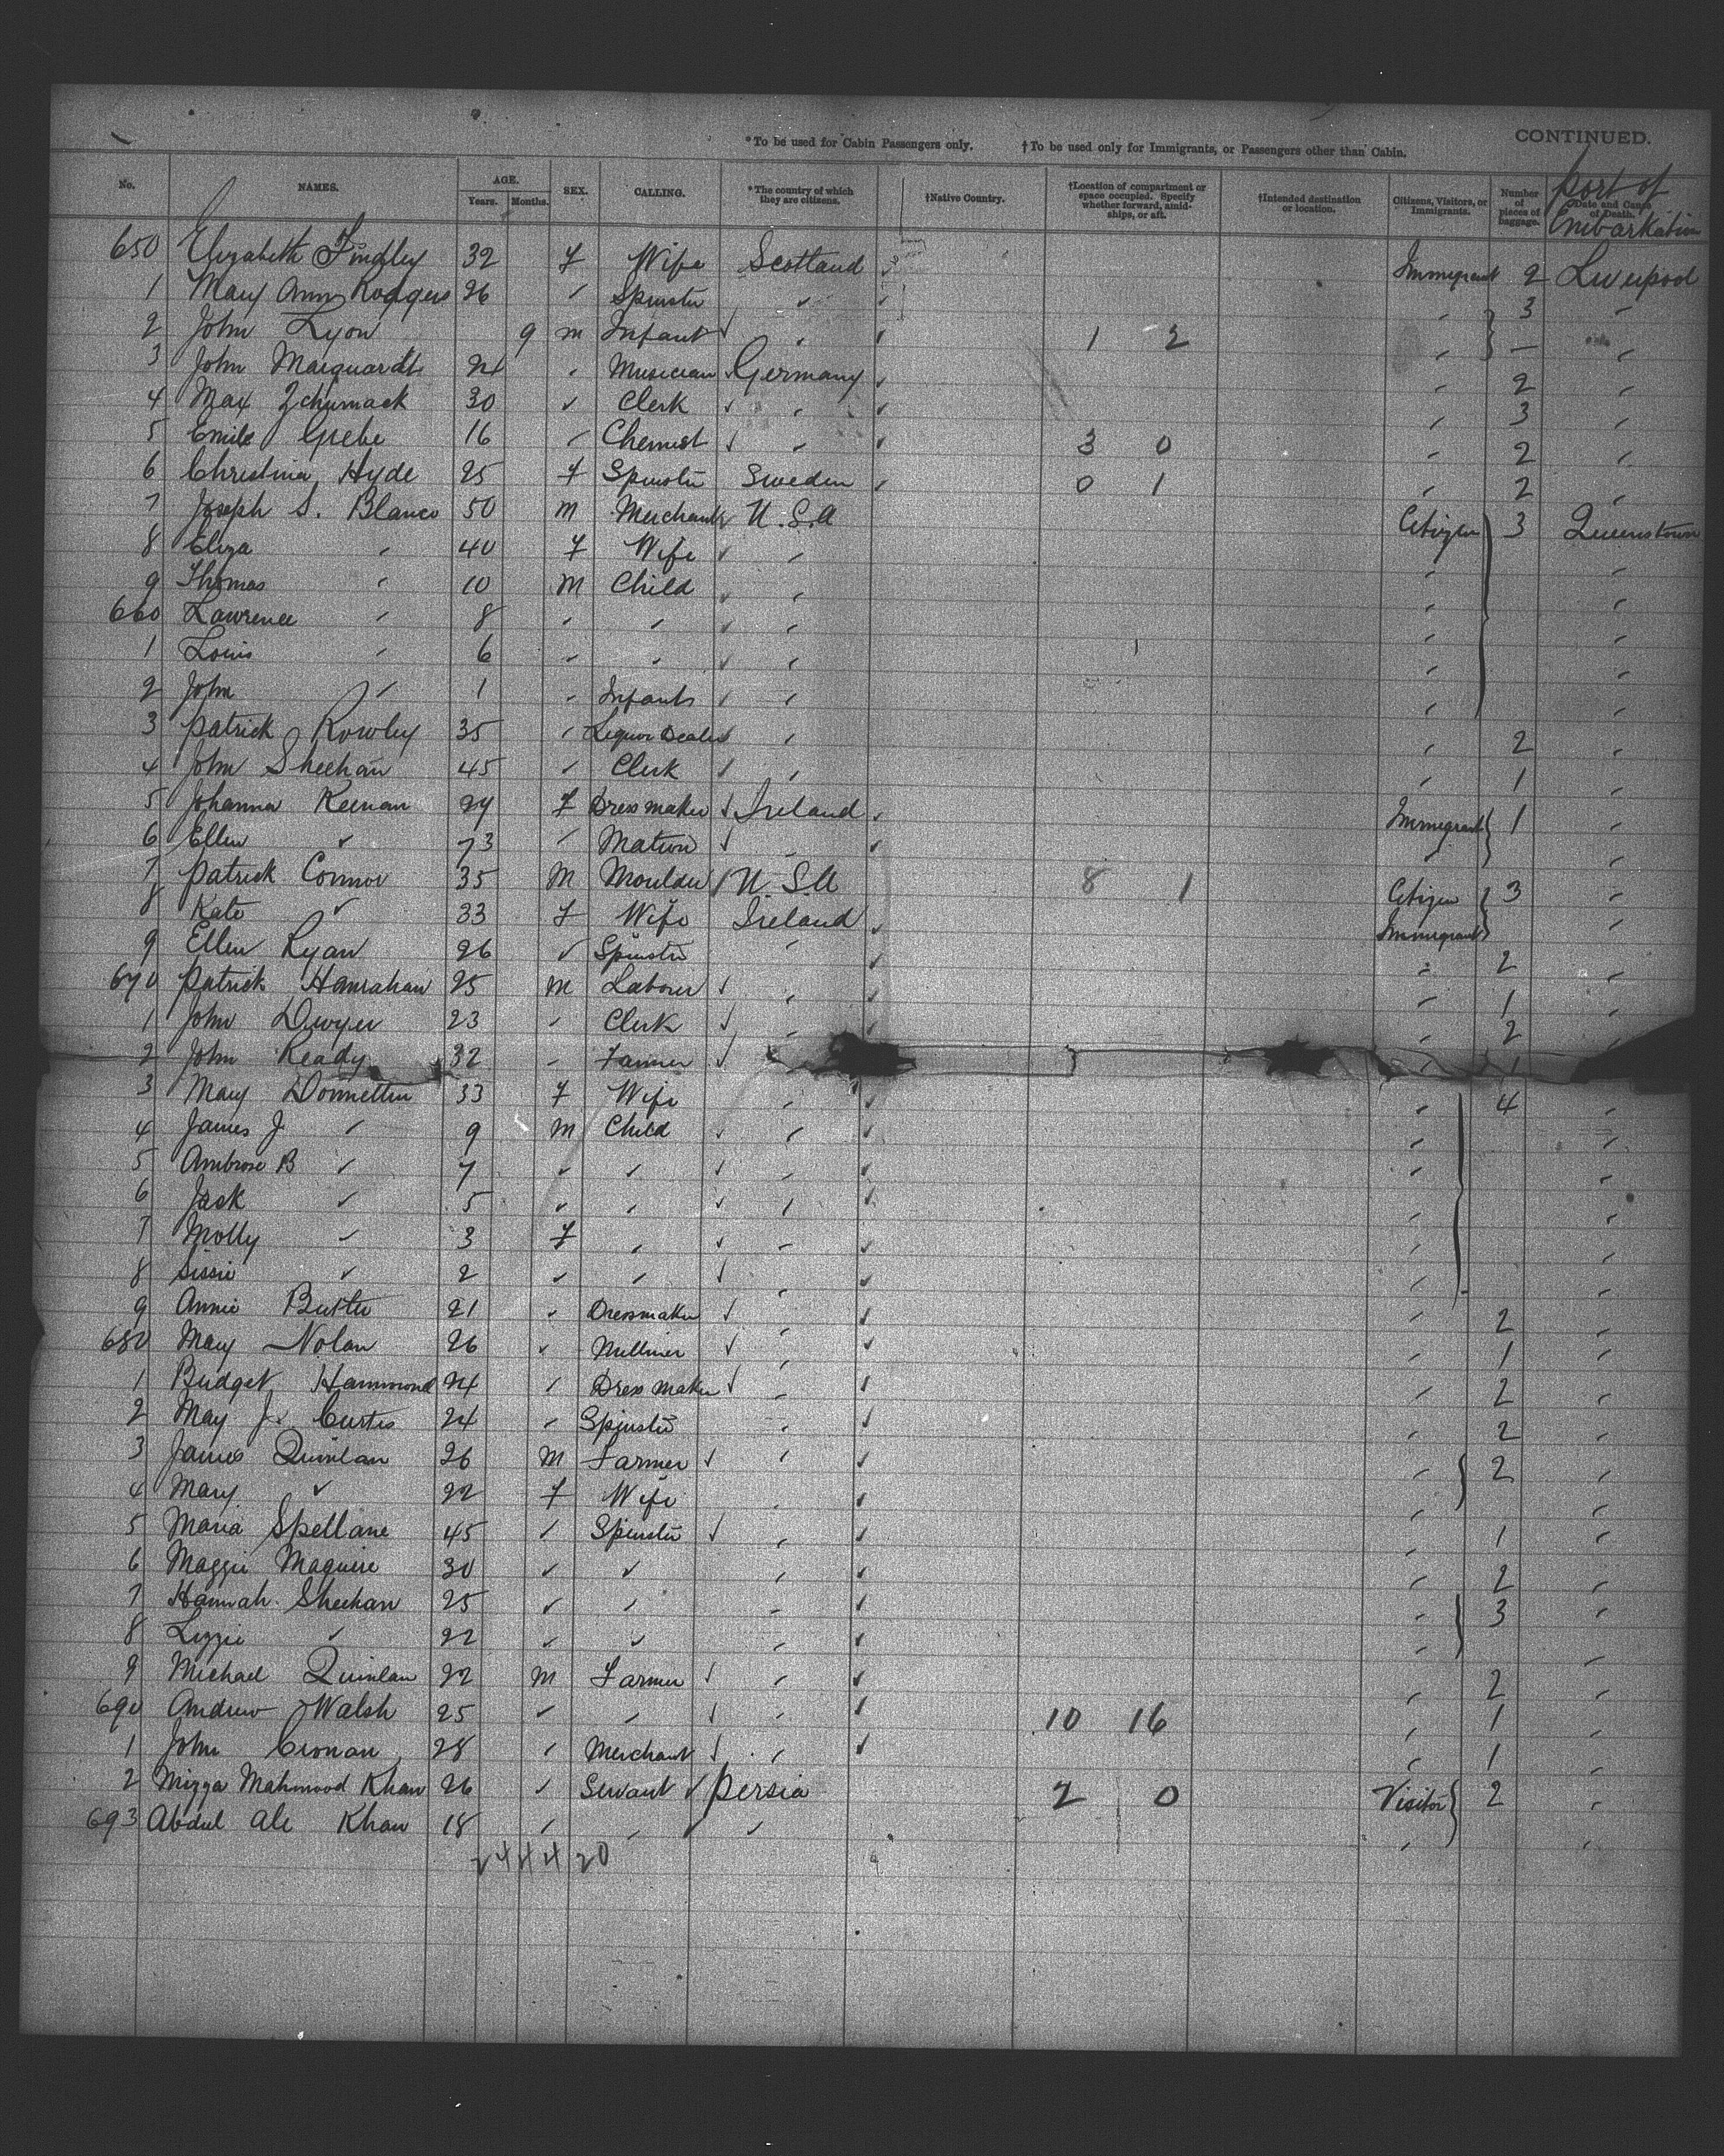 CONTINUED.
*To be used for Cabin Passengers only. †To be used only for Immigrants, or Passengers other than Cabin.
No. NAMES. AGE. Years. Months. SEX. CALLING. *The country of which they are citizens. †Native Country. †Location of compartment or space occupied. Specify whether forward, amidships, or aft. †Intended destination or location. Citizens, Visitors, or Immigrants. Number of pieces of baggage. Date and Cause of Death. Port of Embarkation
650 Elizabeth Findley 32 F Wife Scotland Immigrant 2 Liverpool
1 Mary Ann Rodgers 26 " Spinster " " 3 "
2 John Lyon 9 M Infant " 1 2 " — "
3 John Marquardt 24 " Musician Germany " 2 "
4 Max Zchumack 30 " Clerk " " 3 "
5 Emile Grebe 16 " Chemist " 3 0 " 2 "
6 Christina Hyde 25 F Spinster Sweden 0 1 " 2 "
7 Joseph S. Blanco 50 M Merchant U.S.A Citizen 3 Queenstown
8 Eliza " 40 F Wife " " "
9 Thomas " 10 M Child " " "
660 Lawrence " 8 " " " " "
1 Louis " 6 " " " " "
2 John " 1 " Infant " " "
3 Patrick Rowley 35 " Liquor Dealer " " 2 "
4 John Sheehan 45 " Clerk " " 1 "
5 Johanna Keenan 24 F Dressmaker Ireland Immigrant 1 "
6 Ellen " 73 " Matron " " "
7 Patrick Connor 35 M Moulder U.S.A 8 1 Citizen 3 "
8 Kate " 33 F Wife Ireland Immigrant "
9 Ellen Ryan 26 " Spinster " " 2 "
670 Patrick Hanrahan 25 M Laborer " " 1 "
1 John Dwyer 23 " Clerk " " 2 "
2 John Ready 32 " Farmer " 1
3 Mary Donnettin 33 F Wife " " 4 "
4 James J " 9 M Child " " "
5 Ambrose B " 7 " " " " "
6 Jack " 5 " " " " "
7 Molly " 3 F " " " "
8 Sissie " 2 " " " " "
9 Annie Butter 21 " Dressmaker " " 2 "
680 Mary Nolan 26 " Milliner " " 1 "
1 Bridget Hammond 24 " Dress maker " " 2 "
2 May J. Curtis 24 " Spinster " " 2 "
3 James Quinlan 26 M Farmer " " 2 "
4 Mary " 22 F Wife " " "
5 Maria Spellane 45 " Spinster " " 1 "
6 Maggie Maguire 30 " " " " 2 "
7 Hannah Sheehan 25 " " " " 3 "
8 Lizzie " 22 " " " " "
9 Michael Quinlan 22 M Farmer " " 2 "
690 Andrew Walsh 25 " " " 10 16 " 1 "
1 John Cronan 28 " Merchant " " 1 "
2 Mizza Mahmood Khan 26 " Servant Persia 2 0 Visitor 2 "
693 Abdul Ali Khan 18 " " " " "
24 44 20